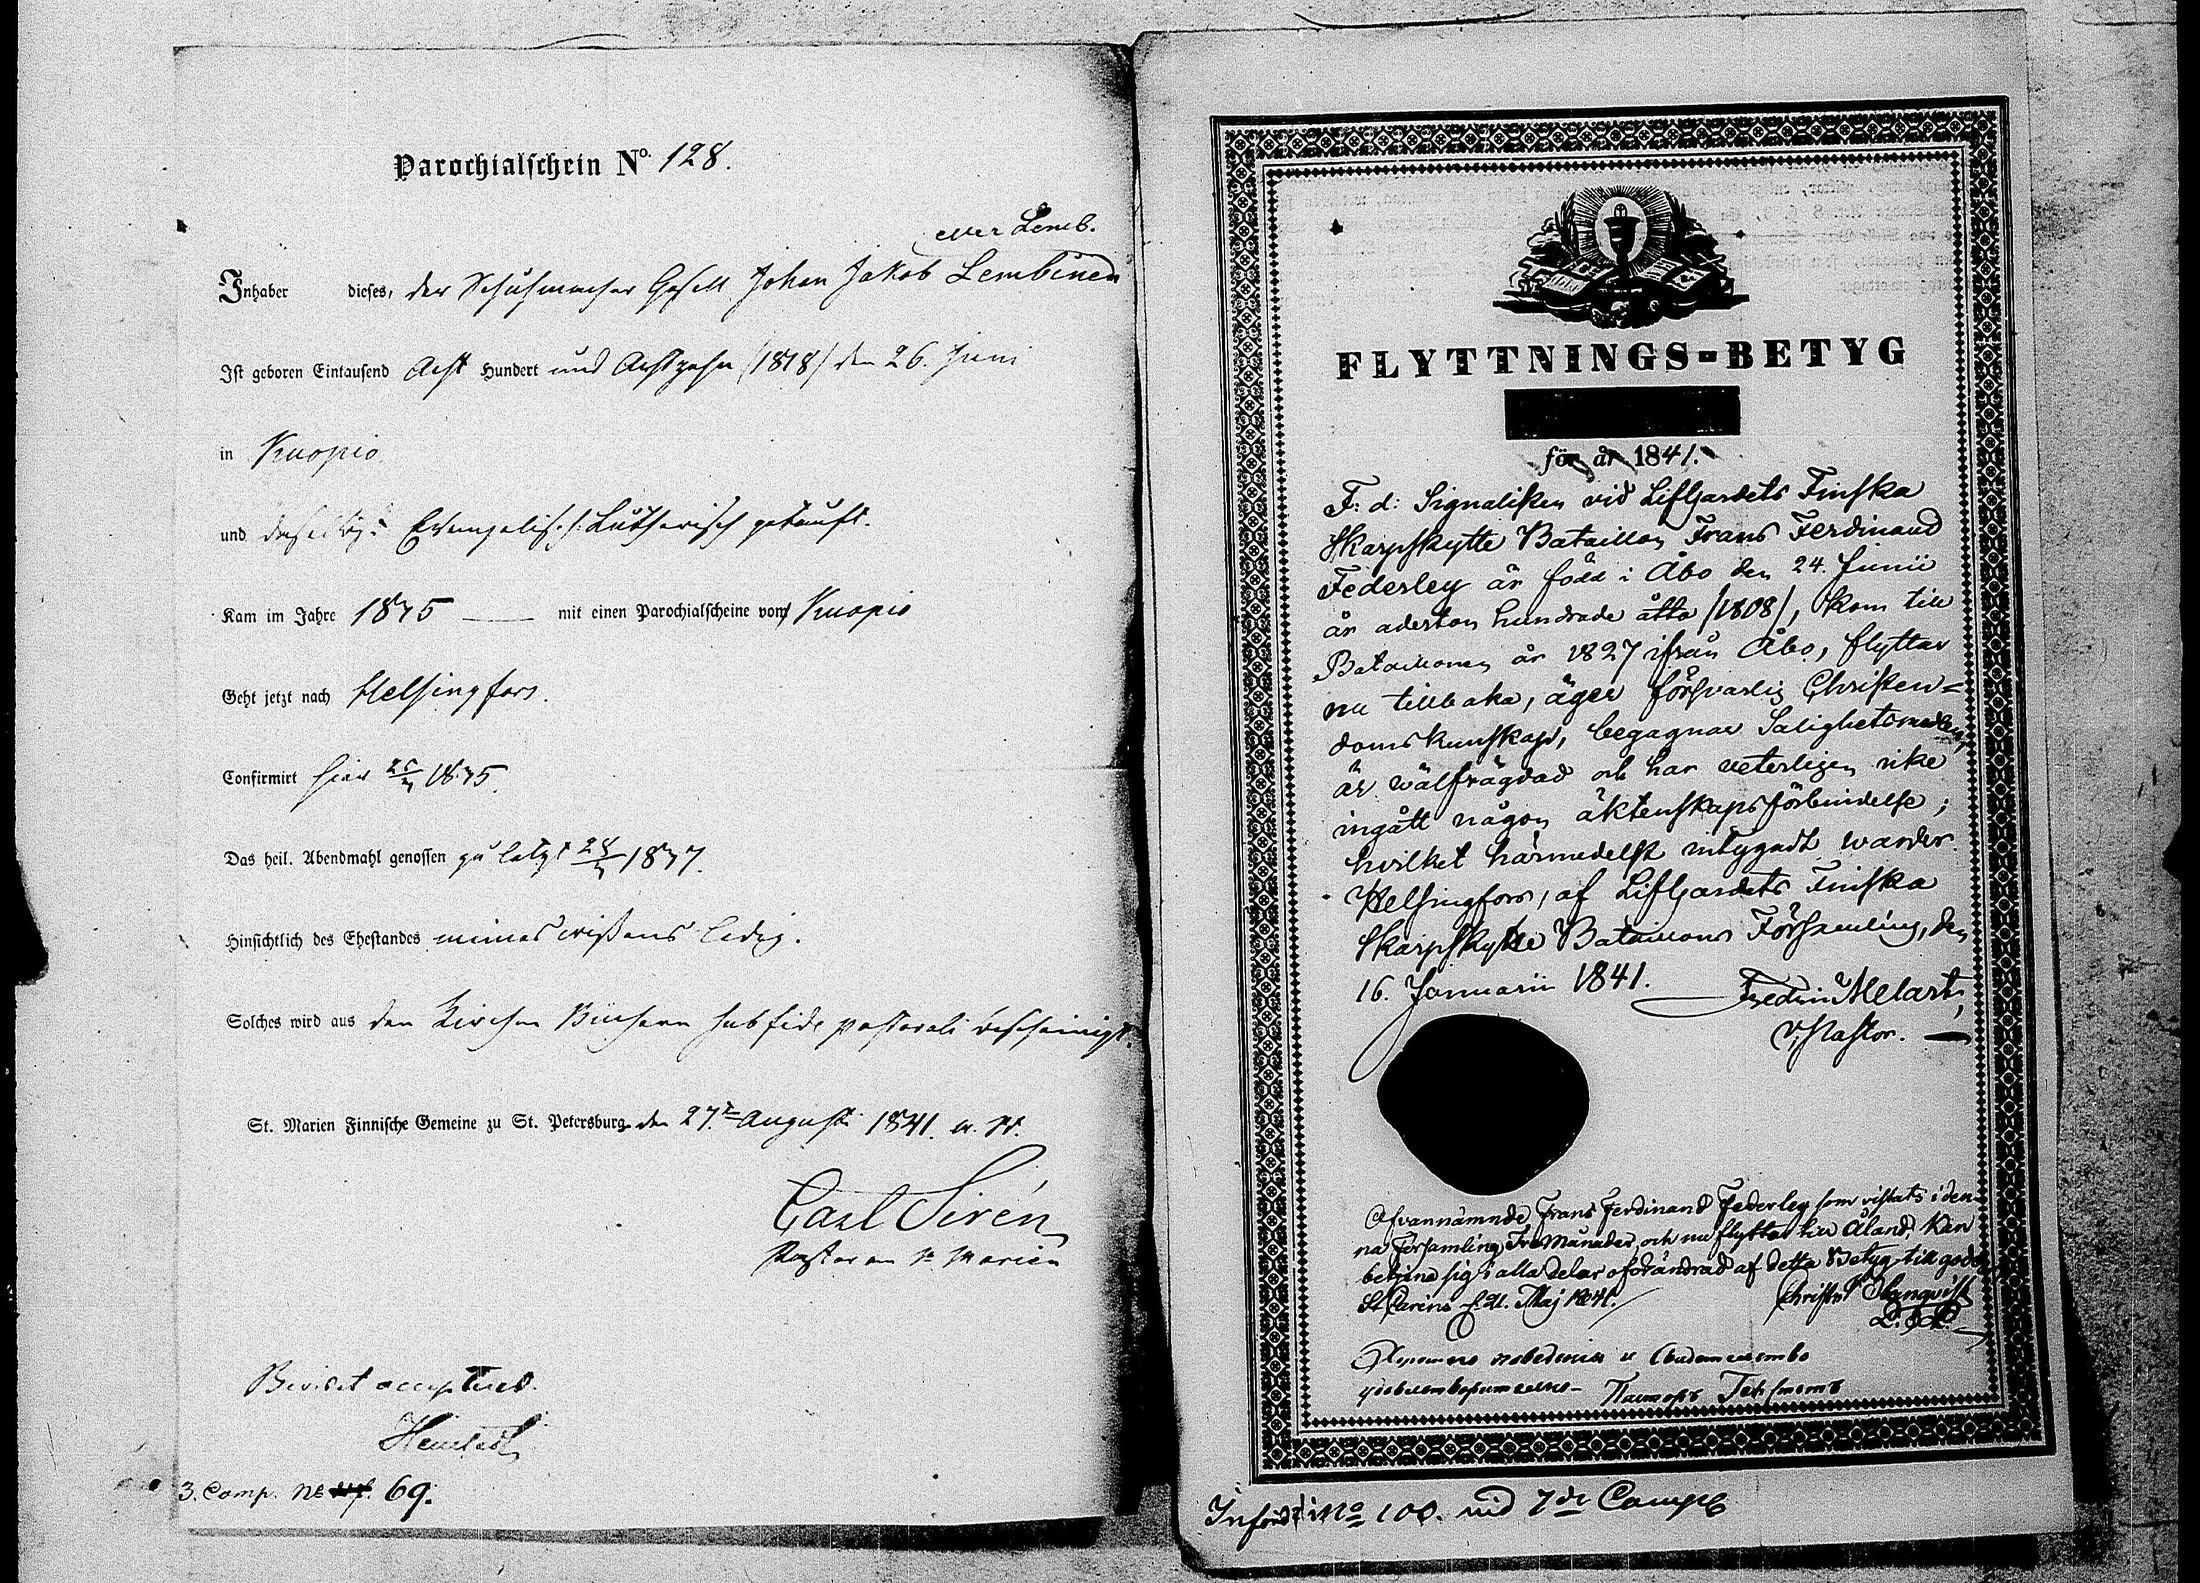 Parochialschein No. 128.
eller Lemb.
Inhaber dieses, der Schuhmacher Gesell Johan Jakob Lembinen
Ist geboren Eintausend Acht Hundert und Achtzehn /1818/ den 26. Juni
in Kuopio
und daselbst Evangelisch Lutherisch getauft.
Kam im Jahre 1835 mit einen Parochialscheine vom Kuopio
Geht jetzt nach Helsingfors.
Confirmirt hier 1835.
Das heil. Abendmahl genossen zu letzt 1837.
Hinsichtlich des Ehestandes meines wißens ledig.
Solches wird aus den Kirchen Büchern sub fide pastorali bescheinigt.
St. Marien Finnische Gemeine zu St. Petersburg den 27 August 1841.
Carl Sirén
Pastor an St Marien
3. Comp. No 69.
FLYTTNINGS-BETYG
för år 1841.
F: d: Signalisten vid Lifgardets Finska
Skarpskytte Bataillon Frans Ferdinand
Federley är född i Åbo den 24. Junii
år aderton hundrade åtta /1808/, kom till
Bataillonen år 1827 ifrån Åbo, flyttar
nu tillbaka, äger försvarlig Christen=
domskunskap, begagnar Salighetsmedlen,
är wälfrägdad och har veterligen icke
ingått någon äktenskapsförbindelse;
hvilket härmedelst intygadt warder.
Helsingfors, af Lifgardets Finska
Skarpskytte Bataillons Församling, den
16. Januarii 1841. Fredrin Melart,
v. Pastor.
Ofvannämnde Frans Ferdinand Federley som vistats i den-
na Församling Tre Månader, och nu flyttar till Åland, kan
betjena sig i alla delar oförändrad af detta Betyg till godo
St Carins d. 21. Maj 1841.
Хорошаго поведенія и Свидетельство
удовлетворительно Пасторъ
Infördt i No 100. vid 7de Comp